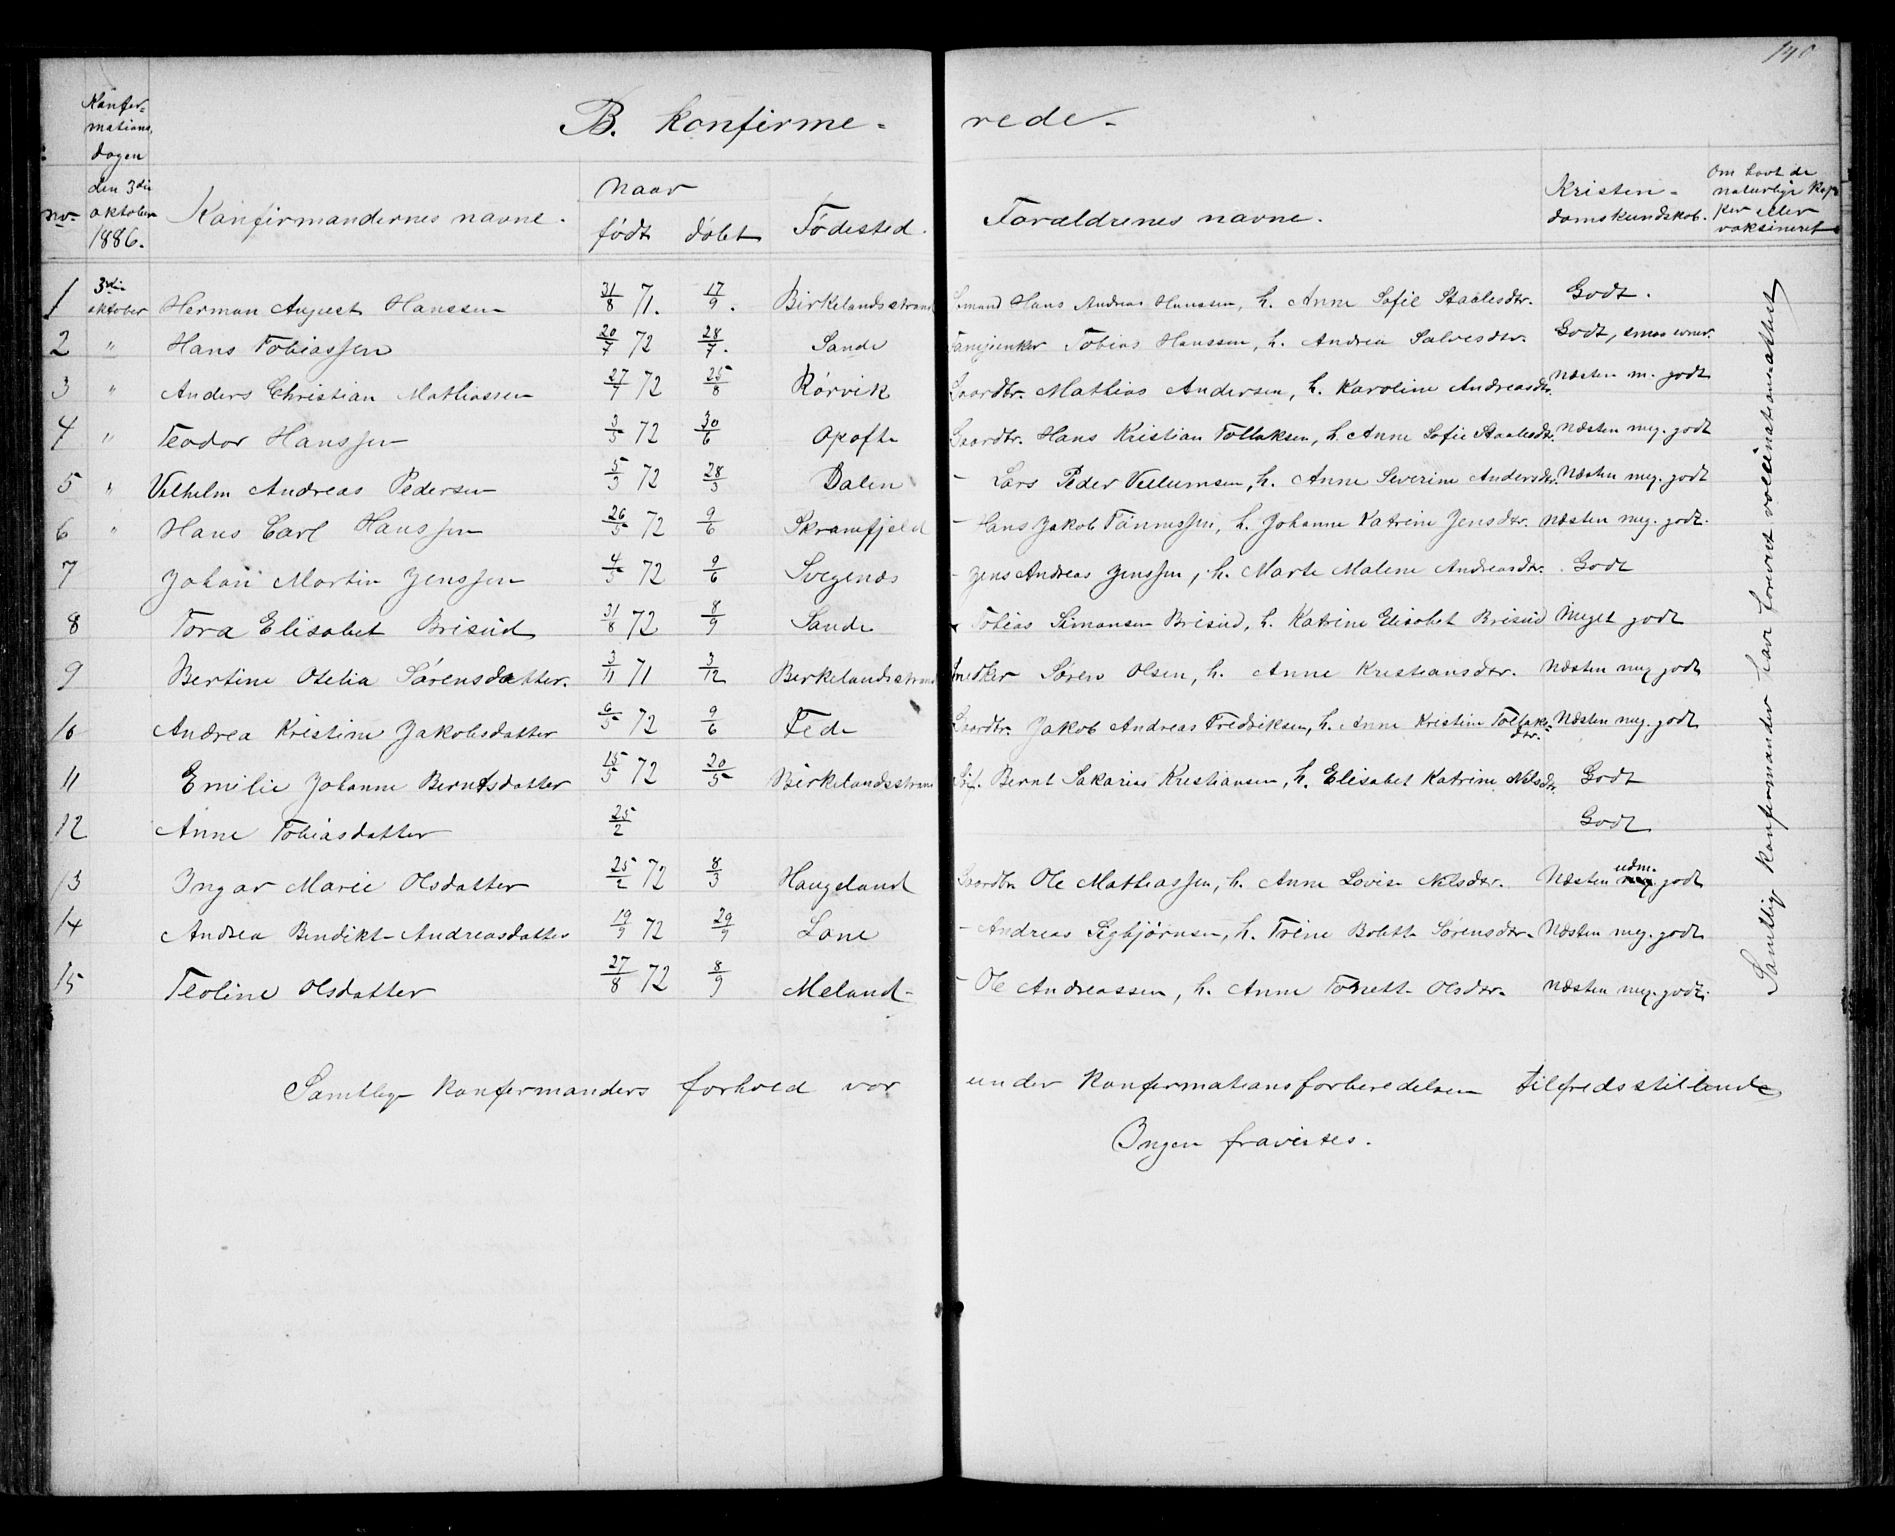 B. Konfirme- rede.
no. Konfirmationsdagen den 3die oktober 1886. Konfirmandernes navne. naar født døbt Fødested. Forældrenes navne. Kristendomskundskab. Om havt de naturlige Kopper eller vaksineret
1 3die oktober Herman August Hanssen 31/8 71. 17/9. Birkelandsstrand Hans Andreas Hanssen, h. Anne Sofie Staalesdtr. Godt.
2 " Hans Tobiassen 20/7 72 28/7. Sande Tobias Hanssen, h. Andrea Salvesdtr. Godt, smaa evner.
3 " Anders Christian Mathiassen 27/7 72 25/8 Rørvik Gaardbr. Mathias Andersen, h. Karoline Andreasdtr. Næsten m. godt
4 " Teodor Hanssen 3/5 72 30/6 Opofte Gaardbr. Hans Kristian Tollaksen, h. Anne Sofie Staalesdtr. Næsten meg. godt
5 " Vilhelm Andreas Pedersen 5/3 72 28/3 Dalen - Lars Peder Villumsen, h. Anne Severine Andersdtr. Næsten meg. godt
6 " Hans Carl Hanssen 26/5 72 9/6 Skramfjeld - Hans Jakob Tønnessen, h. Johanne Katrine Jensdtr. Næsten meg. godt.
7 Johan Martin Jenssen 4/5 72 9/6 Svegenæs - Jens Andreas Jenssen, h. Marte Malene Andreasdtr. Godt
8 Tora Elisabet Brisud 31/8 72 8/9 Sande Tobias Simonsen Brisud, h. Katrine Elisabet Brisud Meget godt
9 Bertine Otelia Sørensdatter. 3/11 71 3/12 Birkelandsstrand Søren Olsen, h. Anne Kristiansdtr. Næsten meg godt
10 Andrea Kristine Jakobsdatter 6/5 72 9/6 Fede Gaardbr. Jakob Andreas Fredriksen, h. Anne Kristine Tollaksdtr. Næsten meg. godt
11 Emilie Johanne Berntsdatter 15/5 72 20/5 Birkelandsstrand Bernt Sakarias Kristiansen, h. Elisabet Katrine Nilsdtr. Godt
12 Anne Tobiasdatter 25/2 Godt
13 Ingar Marie Olsdatter 25/2 72 8/3 Haugeland Gaardbr Ole Mathiassen, h. Anne Lovise Nilsdtr. Næsten udm. godt
14 Andrea Bendikte Andreasdatter 19/9 72 29/9 Lone - Andreas Sigbjørnsen, h. Trine Bolette Sørensdtr. Næsten meg. godt
15 Teoline Olsdatter 27/8 72 8/9 Meland - Ole Andreassen, h. Anne Tonette Olsdtr. Næsten meg. godt.
Samtlige konfirmander har forevist vaccinationsattest
Samtlige Konfirmanders forhold var under Konfirmationsforberedelsen tilfredsstillende
Ingen fravistes.